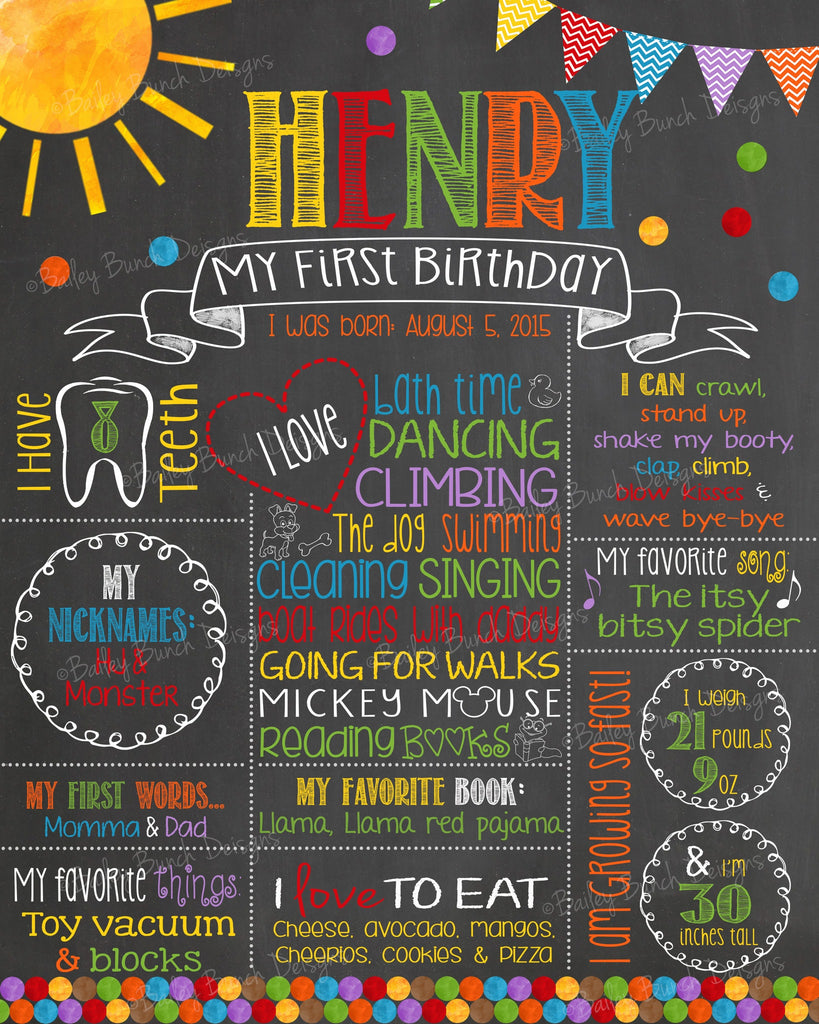 HENRY
MY FIRST BIRTHDAY
I was born: August 5, 2015
I Have
8
Teeth
I LOVE
bath time
DANCING
CLIMBING
The dog swimming
cleaning SINGING
boat rides with daddy
GOING FOR WALKS
MICKEY MOUSE
Reading BOOKS
I CAN crawl,
stand up,
shake my booty,
clap, climb,
blow kisses &
wave bye-bye
MY favorite song:
The itsy
bitsy spider
MY
NICKNAMES:
HJ &
Monster
I am Growing so fast!
I weigh
21 pounds
9 oz
& I'm
30
inches tall
MY FIRST WORDS...
Momma & Dad
MY FAVORITE BOOK:
Llama, Llama red pajama
MY favorite things:
Toy vacuum
& blocks
I love TO EAT
Cheese, avocado, mangos,
Cheerios, cookies & Pizza
©Bailey Bunch Deisgns